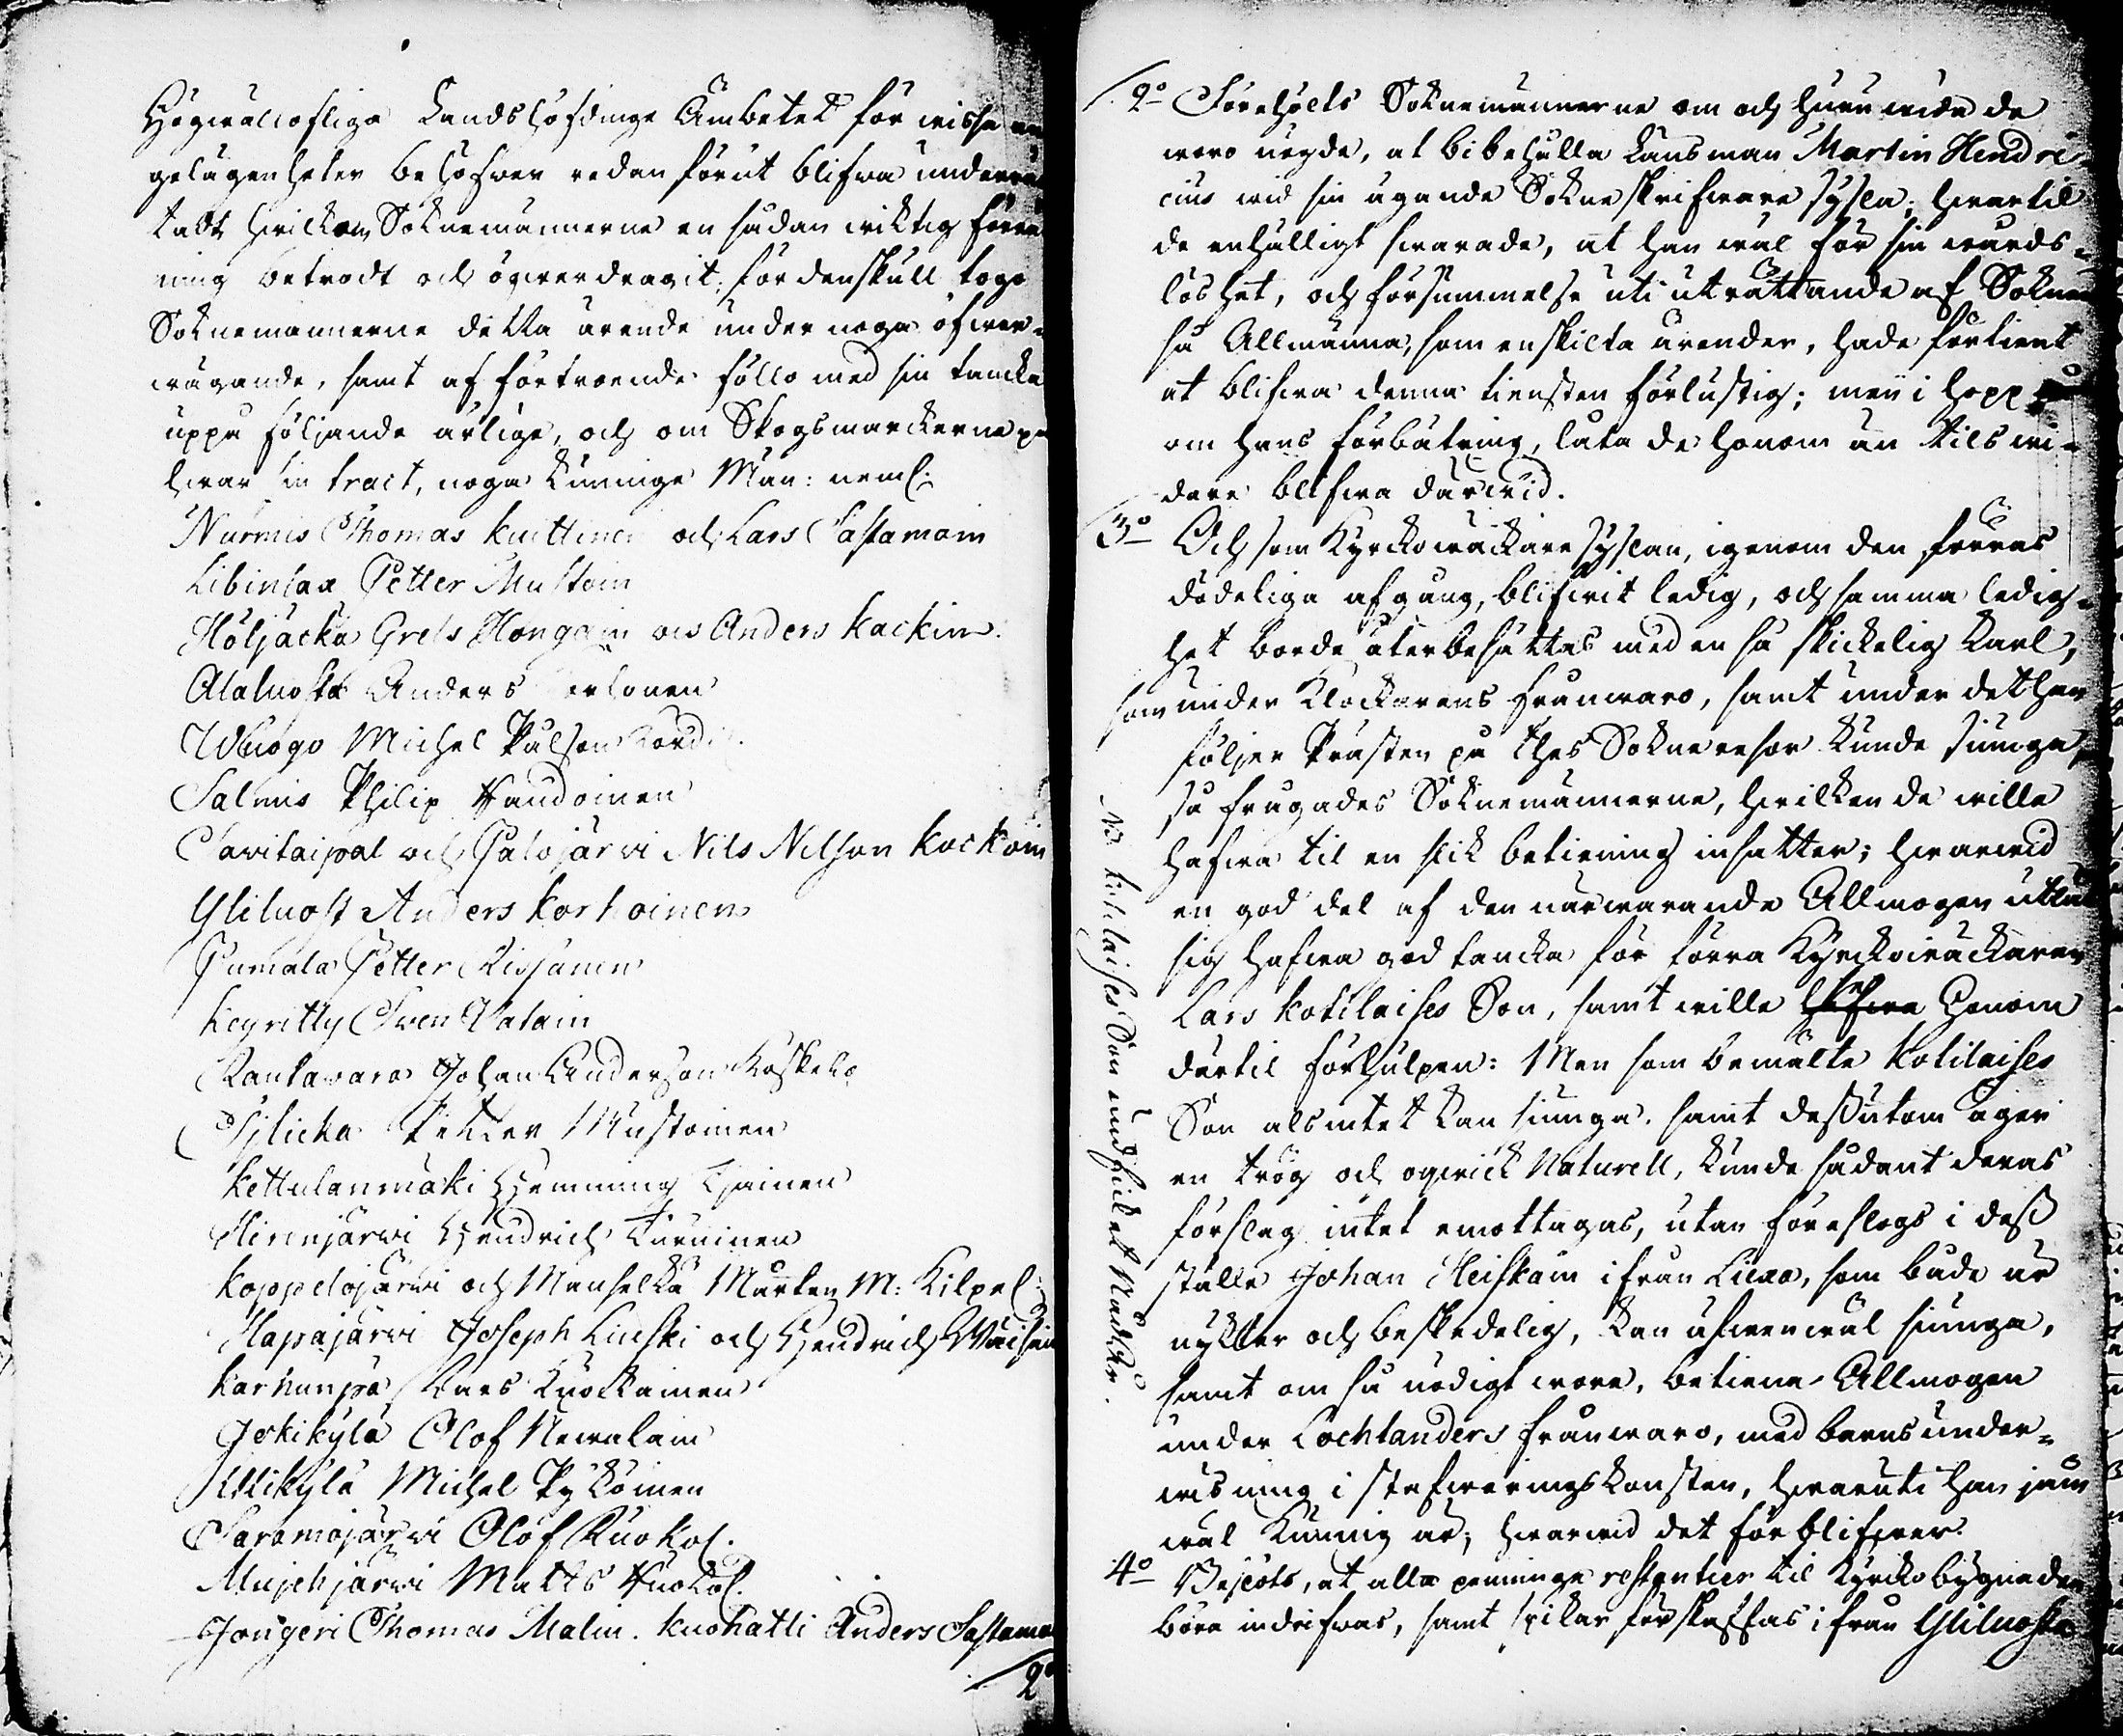 Högwällofliga Landshöfdinge Ämbetet för wissa
gelägenheter behöfwer redan förut blifwa underrä
tadt hwilken Soknemännerne en sådan wiktig förrä
ning betrodt och öfwerdragit; fördenskull togo
Soknemännerne detta ärende under noga öfwer-
wägande, samt af förtroende föllo med sin tancka
uppå följande ärlige, och om Skogsmarckerne på
hwar sin tract, noga kunnige Män: neml:
Nurmis Thomas kuittinen och Lars Sastamoin
Libinlax Petter Mustoin
Höljäckä Grels Hongain och Anders kackin.
Alaluosta Anders
Wuogo Michel Pålson
Salmis Philip
Savitaipal och Palojärwi Nils Nilson kockoin
Yliluost Anders korhoinen
Pumala Petter
keyritty Swen
Rautawara Johan Anderson koskelo
Petter Mustoinen
kettulanmäki Hemming
Hirenjärwi Hendrich Turuinen
koppelojärwi och Mansekä Mårten M: Kilpel:
Hapajärwi Joseph Linski och Hendrich Wäisäin
karhunpä Lars Kuockainen
Jokikylä Olof Newalain
Ylikylä Michel Pyköinen
Saramojärwi Olof Ruokol.
Mujehjärwi Matts Ruokol.
Jongeri Thomas Malin. kuohatti Anders Sastamo
2°
2° Förehölts Soknemännerne om och huru wida de
woro nögde, at bibehålla Länsman Martin Hendri-
cius wid sin ägande Sokneskrifware sysla; hwartil
de enhälligt swarade, at han wäl för sin wårds-
löshet, och försummelse uti uträttande af Sokne
så Allmänna, som enskilta ärender, hade förtient
at blifwa denna tiensten förlustig; men i hopp
om hans förbätring, låta de honom än tils wi-
dare blifwa därwid.
3° Och som Kyrckowäckare syslan, igenom den förras
dödeliga afgång, blifwit ledig, och samma ledig-
het borde återbesättas med en så skickelig karl,
som under Klockarens frånwaro, samt under det han
följer Prästen på thes Sokneresor kunde siunga,
så frågades Soknemännerne, hwilken de wille
hafwa til en slik betiening insatter; hwarwid
en god del af den närwarande Allmogen utlät
sig hafwa god tancka för förra Kyrckowäckaren
Lars kotilaises Son, samt wille hafwa honom
dertil förhulpen: Men som bemälte kotilaises
Son alsintet kan siunga. samt dessutom äger
en trög och oqwick Naturell, kunde sådant deras
förslag intet emottagas, utan föreslogs i dess
ställe Johan Heiskain ifrån Liexa, som både är
nykter och beskedelig, kan äfwenwäl siunga,
samt om så nödigt wore, betiena Allmogen
under Lochlanders frånwaro, med barns under-
wisning i stafwerings konsten, hwaruti han jäm
wäl kunnig är; hwarwid det förblifwer.
4° Besöts, at alla penninge restantier til Kyrcko bygnaden
böra indrifwas, samt spikar förskaffas ifrån Yliluosta
NB kotilaises Son undfick et Nadder.